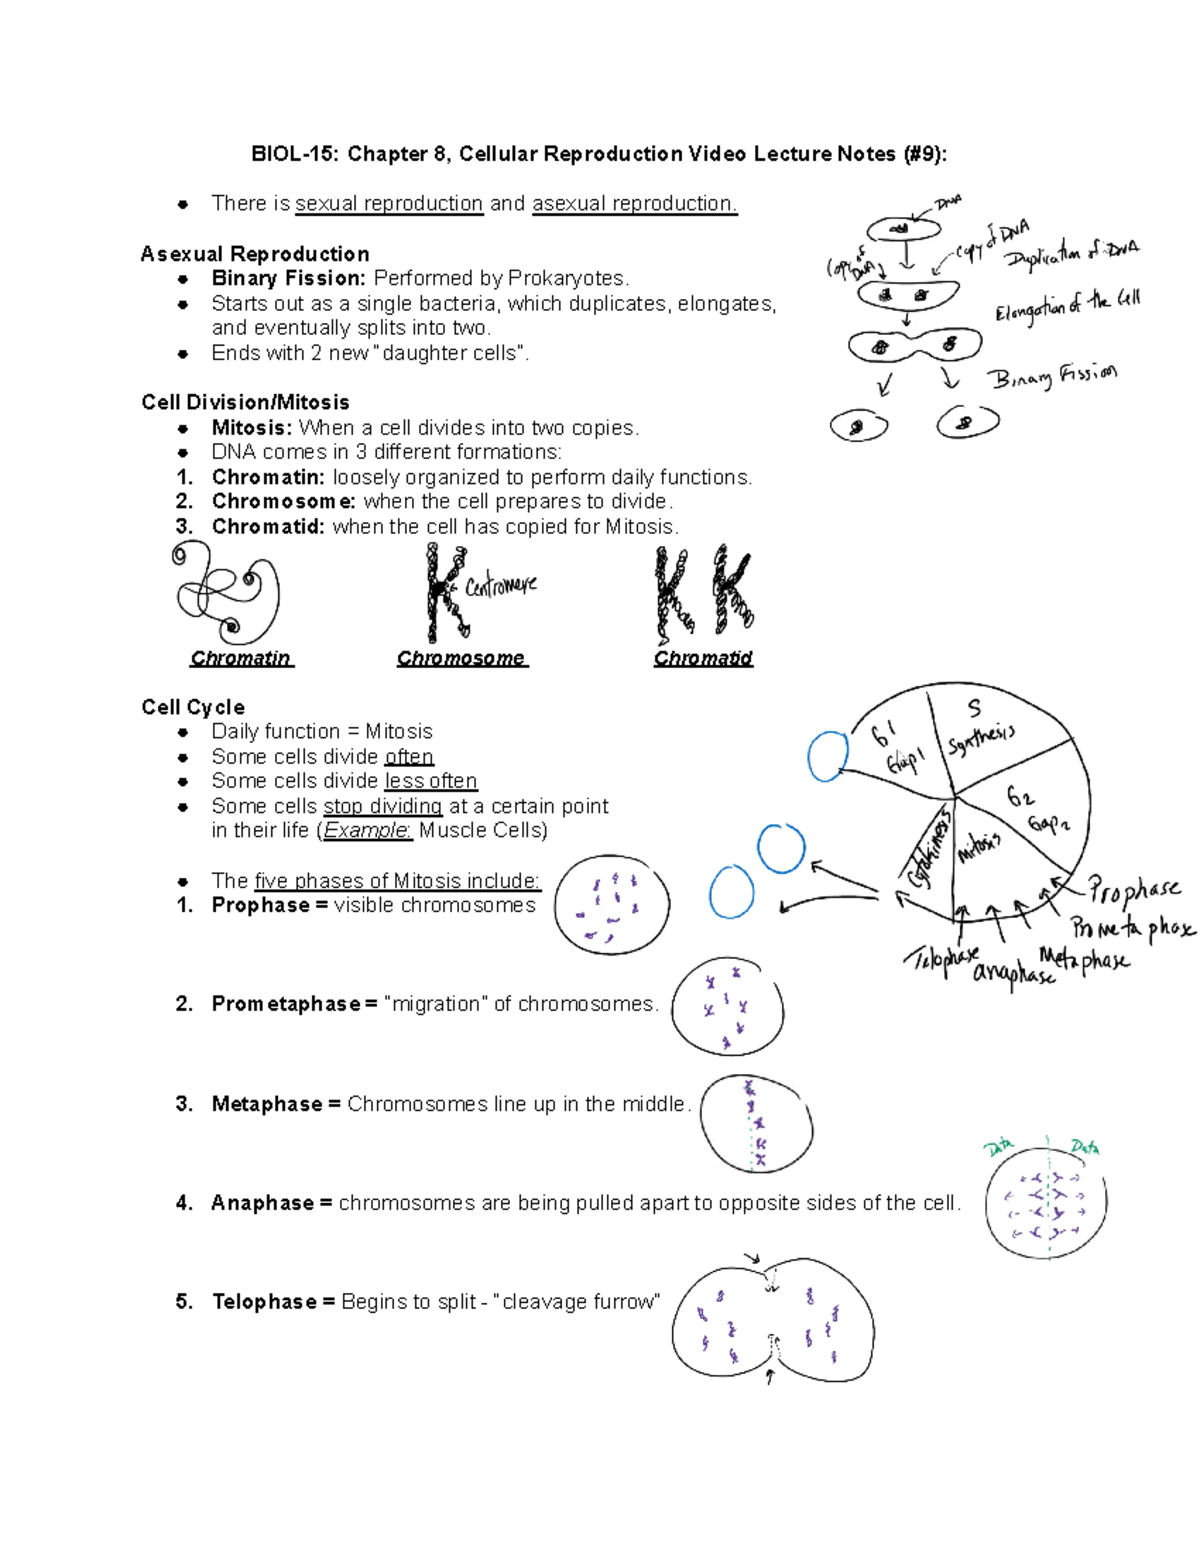 BIOL-15: Chapter 8, Cellular Reproduction Video Lecture Notes (#9):
● There is sexual reproduction and asexual reproduction.
Asexual Reproduction
● Binary Fission: Performed by Prokaryotes.
● Starts out as a single bacteria, which duplicates, elongates,
and eventually splits into two.
● Ends with 2 new "daughter cells".
DNA
Copy of DNA
Copy of DNA
Duplication of DNA
Elongation of the Cell
Binary Fission
Cell Division/Mitosis
● Mitosis: When a cell divides into two copies.
● DNA comes in 3 different formations:
1. Chromatin: loosely organized to perform daily functions.
2. Chromosome: when the cell prepares to divide.
3. Chromatid: when the cell has copied for Mitosis.
Centromere
Chromatin Chromosome Chromatid
Cell Cycle
● Daily function = Mitosis
● Some cells divide often
● Some cells divide less often
● Some cells stop dividing at a certain point
in their life (Example: Muscle Cells)
G1
Gap 1
S
Synthesis
G2
Gap 2
Mitosis
Cytokinesis
Prophase
Prometaphase
Metaphase
Anaphase
Telophase
● The five phases of Mitosis include:
1. Prophase = visible chromosomes
2. Prometaphase = "migration" of chromosomes.
3. Metaphase = Chromosomes line up in the middle.
Data Data
4. Anaphase = chromosomes are being pulled apart to opposite sides of the cell.
5. Telophase = Begins to split - "cleavage furrow"